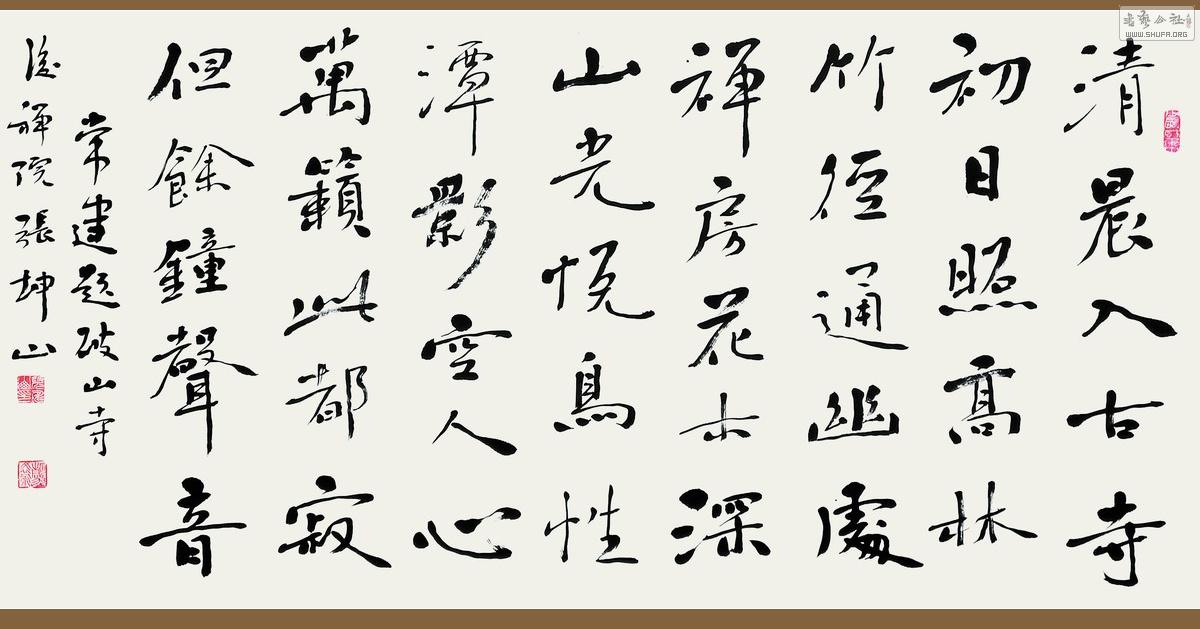 清晨入古寺
初日照高林
竹徑通幽處
禪房花木深
山光悅鳥性
潭影空人心
萬籟此都寂
但餘鐘聲音
常建題破山寺
後禪院張坤山
書藝公社
WWW.SHUFA.ORG